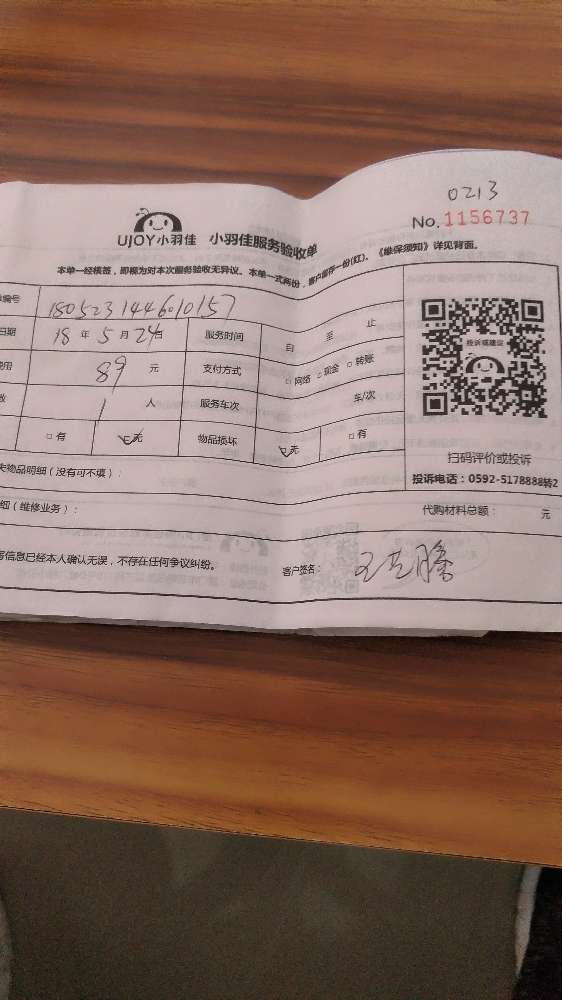 0213
No.1156737
UJOY小羽佳 小羽佳服务验收单
本单一经核签，即视为对本次服务验收无异议。本单一式两份，客户留存一份(红)。《维保须知》详见背面。
编号 180523144610157
日期 18 年 5 月 24日 服务时间 自 至 止
费用 89 元 支付方式 □网络 □现金 □转账
数 1 人 服务车次 车/次
□有 □无 物品损坏 □无 □有
投诉或建议
扫码评价或投诉
投诉电话：0592-5178888转2
失物品明细（没有可不填）：
细（维修业务）： 代购材料总额： 元
客信息已经本人确认无误，不存在任何争议纠纷。 客户签名：